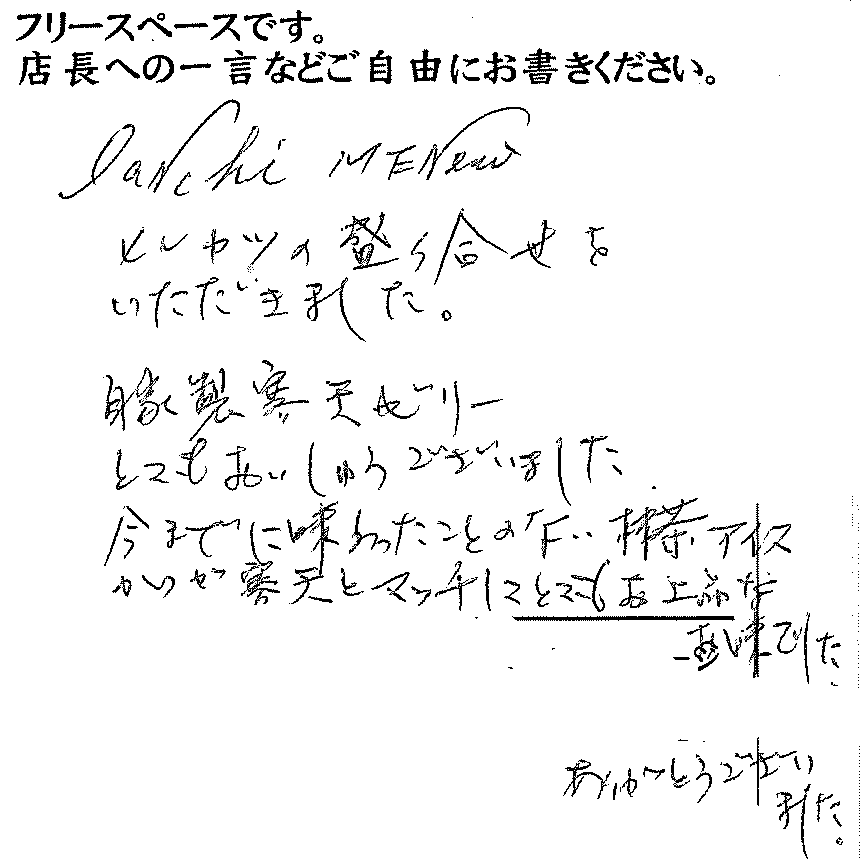 フリースペースです。
店長への一言などご自由にお書きください。
Lanchi MENew
ヒレカツの盛り合せを
いただきました。
自家製寒天ゼリー
とてもおいしゅうございました
今までに味わったことの 抹茶アイス
寒天とマッチしてとてもお上品な
お味でした
ありがとうござい
ました。